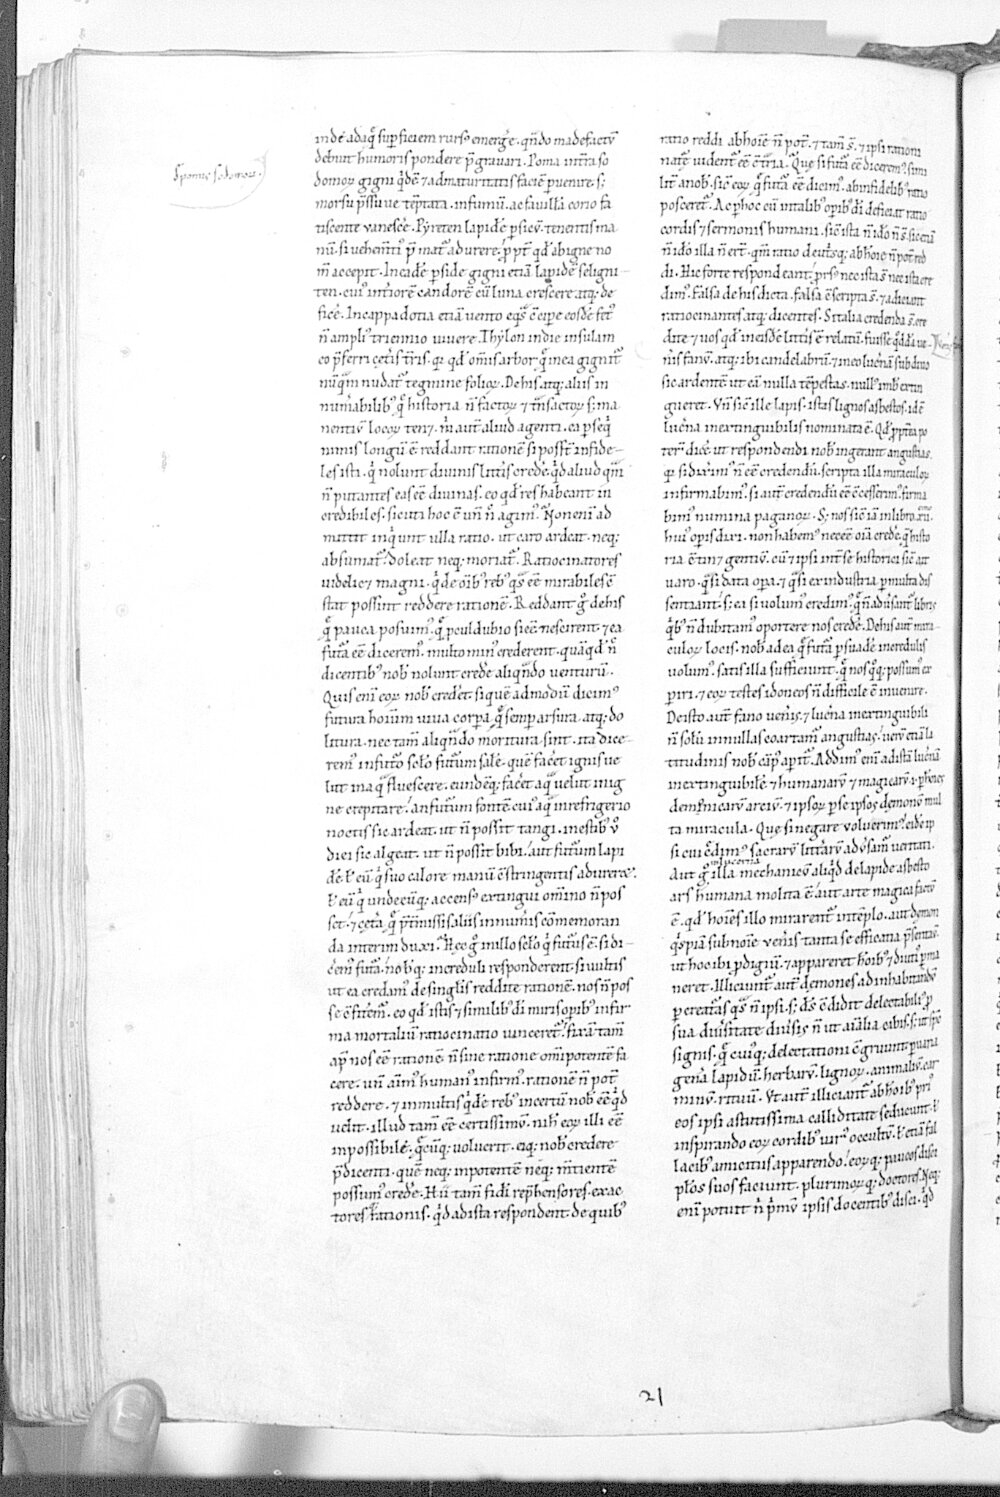 S pomis sodomoꝝ.
inde adaq̃ supficiem rursꝰ emerg̃e. qñdo madefactũ
debuit humoris pondere p̃gravari. Poma int̃ra so
domoꝝ gigni q̃dẽ ⁊ admaturitatis faciẽ p̃venire. s;
morsu p̃ssu ve tẽptata. infumũ. ac favillã corio fa
tiscente vanesc̃e. Pyriten lapidẽ p̃sicũ. tenentis ma
nũ. si vehem̃tiꝰ p̃mat̃ adurere. p̃pt̃ qd̃ abigne no
m̃ accepit. Incadẽ p̃side gigni etiã lapidẽ seligni
ten. cuiꝰ int̃iorẽ candorẽ cũ luna crescere atq; de
fic̃e. Incappadotia etiã vento eq̃s c̃cipe eosdẽ fet̃ꝰ
ñ ampliꝰ triennio vivere. Thylon indie insulam
eo p̃ferri cet̃is t̃ris. qꝫ qd̃ om̃is arbor q̃ inea gignit̃
nũq̃m nudat̃ tegmine folioꝝ. De his atq; aliis in
num̃abilibꝰ q̃ historia ñ factoꝝ ⁊ t̃nsactoꝝ s; ma
nentiũ locoꝝ ten⁊. m̃ aut̃ aliud agenti. ea p̃seq̃
nimis longũ ẽ. reddant rationẽ si possñt infide
les isti. q̃ nolunt divinis litt̃is cred̃e. q̃d aliud q̃m
ñ putantes eas eẽ divinas. eo qd̃ res habeant in
credibiles. sicuti hoc ẽ uñ ñ agimꝰ. Non enĩ ad
mittit inq̃unt ulla ratio. ut caro ardeat. neq;
absumat̃. doleat neq; moriat̃. Ratiocinatores
videlic⁊ magni. q̃ de om̃ibꝰ rebꝰ q̃s eẽ mirabiles ẽ
stat possint reddere rationẽ. Reddant g̃ de his
q̃ pauca posuimꝰ. q̃ p̃cul dubio si eẽ nescirent. ⁊ ea
fut̃a eẽ diceremꝰ. multo minꝰ crederent. quã qd̃ ñ
dicentibꝰ nob̃ nolunt cred̃e aliqñdo venturũ.
Quis enĩ eoꝝ nob̃ cred̃et. si quẽ admodũ dicimꝰ
futura hoiũm viva corpora q̃ semp arsura. atq; do
litura. nec tam̃ aliqñdo moritura sint. ita dice
remꝰ infut̃o sclo futurum sale. quẽ fac̃et ignis ve
lut in aq̃ fluescere. eundẽq; fac̃et aq̃ velut in ig
ne crepitare. an futurum fontẽ cuiꝰ aq̃ in refrigerio
noctis sic ardeat. ut ñ possit tangi. in estibꝰ ṽ
diei sic algeat. ut ñ possit bibi. aut futurum lapi
dẽ. ł eũ q̃ suo calore manũ c̃stringentis adureret.
ł eũ q̃ undecũq; accensꝰ extingui om̃ino ñ pos
set. ⁊ cet̃a q̃ p̃t̃missis aliis innum̃is cõmemoran
da interim duxi. Hec g̃ in illo sclo q̃ futurũ ẽ. si di
c̃emꝰ fut̃a. nobq; increduli responderent. si vultis
ut ea credamꝰ de singlis reddite rationẽ. nos ñ pos
se c̃fitem̃. eo qd̃ istis ⁊ similibꝰ di miris opibꝰ infir
ma mortaliũ ratiocinatio vinceret̃. fixã tam̃
ap̃ nos eẽ rationẽ. ñ sine ratione om̃ipotentẽ fa
cere. un̄ aĩmꝰ humanꝰ infirmꝰ. rationẽ ñ pot̃
reddere. ⁊ in multis q̃dẽ rebꝰ incertũ nob̃ eẽ q̃d
velit. illud tam̃ eẽ certissimũ. nih̃ eoꝝ illi eẽ
inpossibile. q̃cũq; voluerit. eiq; nob̃ credere
p̃dicenti. quẽ neq; inpotentẽ neq; m̃tientẽ
possumꝰ cred̃e. Hii tam̃ fidi rep̃hensores. exac
tores rationis. q̃d adista respondent. de quibꝰ
ratio reddi abhoiẽ ñ pot̃. ⁊ tam̃ s̃. ⁊ ipsi rationi
nat̃e vident̃ eẽ c̃t̃ria. Quę si fut̃a eẽ diceremꝰ. simi
lit̃ anob̃. sic̃ eoꝝ q̃ fut̃a eẽ dicimꝰ. abinfidelibꝰ ratio
posceret̃. Ac p̃hoc cũ intalibꝰ opibꝰ di deficiat ratio
cordis ⁊ sermonis humani. sic̃ ista ñ idõ ñ s̃. sic etiã
ñ idõ illa ñ ert̃. qm̃ ratio deut̃sq; abhoiẽ ñ pot̃ red
di. Hic forte respondeant. p̃rsꝰ nec ista s̃. nec ista cre
dimꝰ. falsa de his dicta. falsa c̃scripta s̃. ⁊ adiciant
ratiocinantes. atq; dicentes. Si talia credenda s̃. cre
dite ⁊ vos qd̃ in eisdẽ litt̃is ẽ relatũ. fuisse q̃dda ve-
n̄is fanũ. atq; ibi candelabrũ. ⁊ in eo luc̃nã sub divo
sic ardentẽ ut eã nulla tẽpestas. nullꝰ imb̃ extin
gueret. Un̄ sic̃ ille lapis. ista lignos asbestos. idẽ
luc̃na inextinguibilis nominata ẽ. Qd̃ p̃pt̃ea po
ter̃ dic̃e. ut respondendi nob̃ ingerant angustias.
qꝫ si dixim̃ꝰ ñ eẽ credendũ. scripta illa miraculoꝝ
infirmabimꝰ. si aut̃ credendũ eẽ c̃cesserimꝰ. firma
bimꝰ numina paganoꝝ. S; nos sic̃ iã in libro .xvIII.
huiꝰ opis dixi. non habemꝰ necẽe oĩa cred̃e. q̃ histo
ria c̃tin⁊ gentiũ. cũ ⁊ ipsi int̃ se historici sic̃ ait
varo. q̃si data opa. ⁊ q̃si ex industria p̃multa dis
sentiant. s; ea si volumꝰ credimꝰ. q̃ ñ advsant̃ libris
q̃bꝰ ñ dubitamꝰ oportere nos cred̃e. De his aut̃ mira
culoꝝ locis. nob̃ adea q̃ fut̃a p̃suadẽ incredulis
volumꝰ. satis illa sufficiunt. q̃ nos q̃q; possumꝰ ex
p̃iri. ⁊ eoꝝ testes idoneos ñ difficile ẽ invenire.
De isto aut̃ fano ven̄is. ⁊ luc̃na inextinguibili
ñ solũ in nullas coartam̃ angustias. verũ etiã la
titudinis nob̃ cãp̃ apit̃. Addimꝰ enĩ adistã luc̃nã
inextinguibilẽ. ⁊ humanarũ ⁊ magicarũ .i. p̃ hoies
demonicarũ arciũ. ⁊ ipsoꝝ p̃ se ipsos demonũ mul
ta miracula. Quę si negare voluerimꝰ. eidẽ ip
si cui c̃dimꝰ sacrarũ litt̃arũ adṽsam̃ veritati.
lucerna
Aut g̃ in illa mechanicũ aliq̃d de lapide asbesto
ars humana molita ẽ. aut arte magica factũ
ẽ. qd̃ hoiẽs illo mirarent̃ in tẽplo. aut demon
q̃spiã sub noĩe ven̄is tanta se efficatia p̃sentav̄.
ut hoc ibi p̃digiũ. ⁊ appareret hoĩbꝰ ⁊ diutiꝰ p̃ma
neret. Illiciunt̃ aut̃ demones ad inhabitandũ
p̃ creat̃as q̃s ñ ipsi. s; d̃s c̃didit delectabilibꝰ p̃
sua divsitate divsis. ñ ut aĩalia cibis. s; ut sp̃c
signis. q̃ cuiꝰq; delectationi c̃gruunt. p̃ varia
gen̄a lapidũ. herbarũ. lignoꝝ. animaliũ. car
minũ. rituũ. Ut aut̃ illiciant̃ abhoĩbꝰ. priꝰ
eos ipsi astutissima calliditate seducunt. ł
inspirando eoꝝ cordibꝰ virꝰ occultũ. ł etiã fal
lacibꝰ amicitiis apparendo. eoꝝq; paucos disci
plõs suos faciunt. plurimoꝝq; doctores. Neq;
enĩ potuit ñ p̃mũ ipsis docentibꝰ disci. q̃d
21